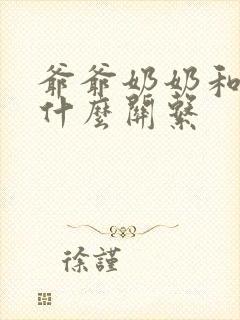 爺爺奶奶和
什麼關繫
徐謹